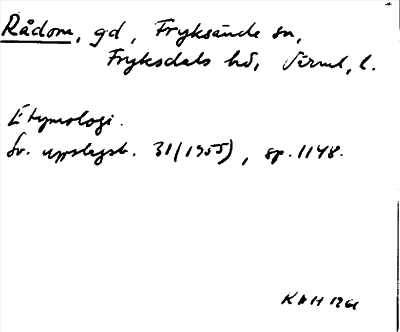 Rådom, gd, Fryksände sn,
Fryksdals hd, Värml, l.
Etymologi.
Sv. uppslagsb. 31(1955), sp. 1148.
KAH 1961